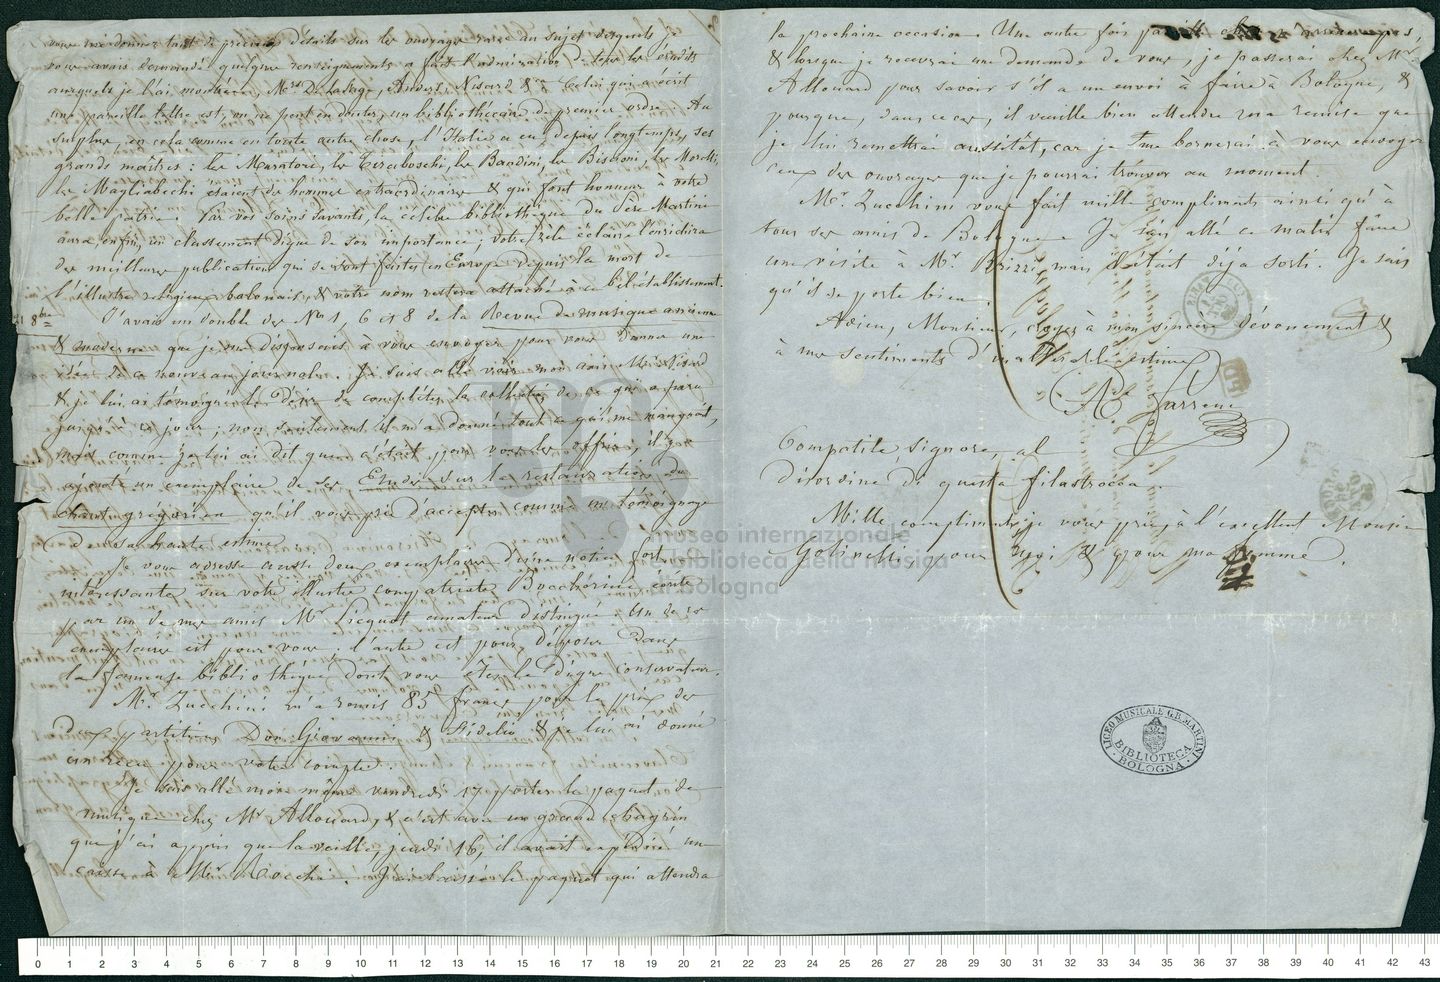 vous me donnez tant de précieux détails sur les ouvrages rares au sujet desquels
vous avais demandé quelques renseignements a fait l'admiration de tous les érudits
auxquels je l'ai montrée. Mrs De Lafage, Anders, Nisard & a Celui qui a écrit
une pareille lettre est, on ne peut en douter, un bibliothécaire de premier ordre. Au
surplus, en cela comme en toute autre chose, l'Italie a eu depuis longtemps, ses
grands maîtres: les Muratori, les Tiraboschi, les Bandini, les Biscioni, les Morelli,
les Magliabecchi étaient des hommes extraordinaires & qui font honneur à votre
belle patrie. Par vos soins savants, la célèbre bibliothèque du Père Martini
aura enfin, un classement digne de son importance; votre zèle éclairé l'enrichira
des meilleures publications qui se sont faites en Europe depuis la mort de
l'illustre religieux bolonais, & votre nom restera attaché à ce bel établissement.
8bre
J'avais un double des Nos 1, 6 et 8 de la Revue de musique ancienne
& moderne que je me disposais à vous envoyer pour vous donner une
idée de ce nouveau journal. Je suis allé voir mon ami Mr Nisard
& je lui ai témoigné le désir de compléter la collection de ce qui a paru
jusqu'à ce jour; non seulement il m'a donné tout ce qui me manquait,
mais comme je lui ai dit que c'était pour vous les offrir, il y a
ajouté un exemplaire de ses Etudes sur la restauration du
chant grégorien qu'il vous prie d'accepter comme un témoignage
de sa haute estime.
Je vous adresse aussi deux exemplaires d'une notice fort
intéressante sur votre illustre compatriote Boccherini écrite
par un de mes amis Mr Picquot amateur distingué. Un de ces
exemplaires est pour vous. l'autre est pour déposer dans
la fameuse bibliothèque dont vous êtes le digne conservateur.
Mr Zucchini m'a remis 85 francs pour le prix des
deux partitions Don Giovanni & Fidelio & je lui ai donné
un reçu pour votre compte.
Je suis allé moi même vendredi 17 porter le paquet de
musique chez Mr Allouard, & c'est avec un grand chagrin
que j'ai appris que la veille, jeudi 16, il avait expédié une
caisse à Mr Rocchi. J'ai laissé le paquet qui attendra
la prochaine occasion. Une autre fois
& lorsque je recevrai une demande de vous, je passerai chez Mr
Allouard pour savoir s'il a un envoi à faire à Bologne, &
pourque, dans ce cas, il veuille bien attendre ma remise que
je lui remettrai aussitôt, car je me bornerai à vous envoyer
ceux des ouvrages que je pourrai trouver au moment.
Mr Zucchini vous fait mille compliments ainsi qu'à
tous ses amis de Bologne. Je suis allé ce matin faire
une visite à Mr Brizzi, mais il était déjà sorti. Je sais
qu'il se porte bien.
Adieu, Monsieur, croyez à mon sincère dévouement &
à mes sentiments d'inaltérable estime
Ad Farrenc
Compatite, signore, al
disordine di questa filastrocca
Mille compliments je vous prie, à l'excellent Monsieur
Golinelli, pour moi & pour ma femme.
PD
LICEO MUSICALE G.B. MARTINI
BIBLIOTECA
BOLOGNA
museo internazionale
e biblioteca della musica
di bologna
0 1 2 3 4 5 6 7 8 9 10 11 12 13 14 15 16 17 18 19 20 21 22 23 24 25 26 27 28 29 30 31 32 33 34 35 36 37 38 39 40 41 42 43